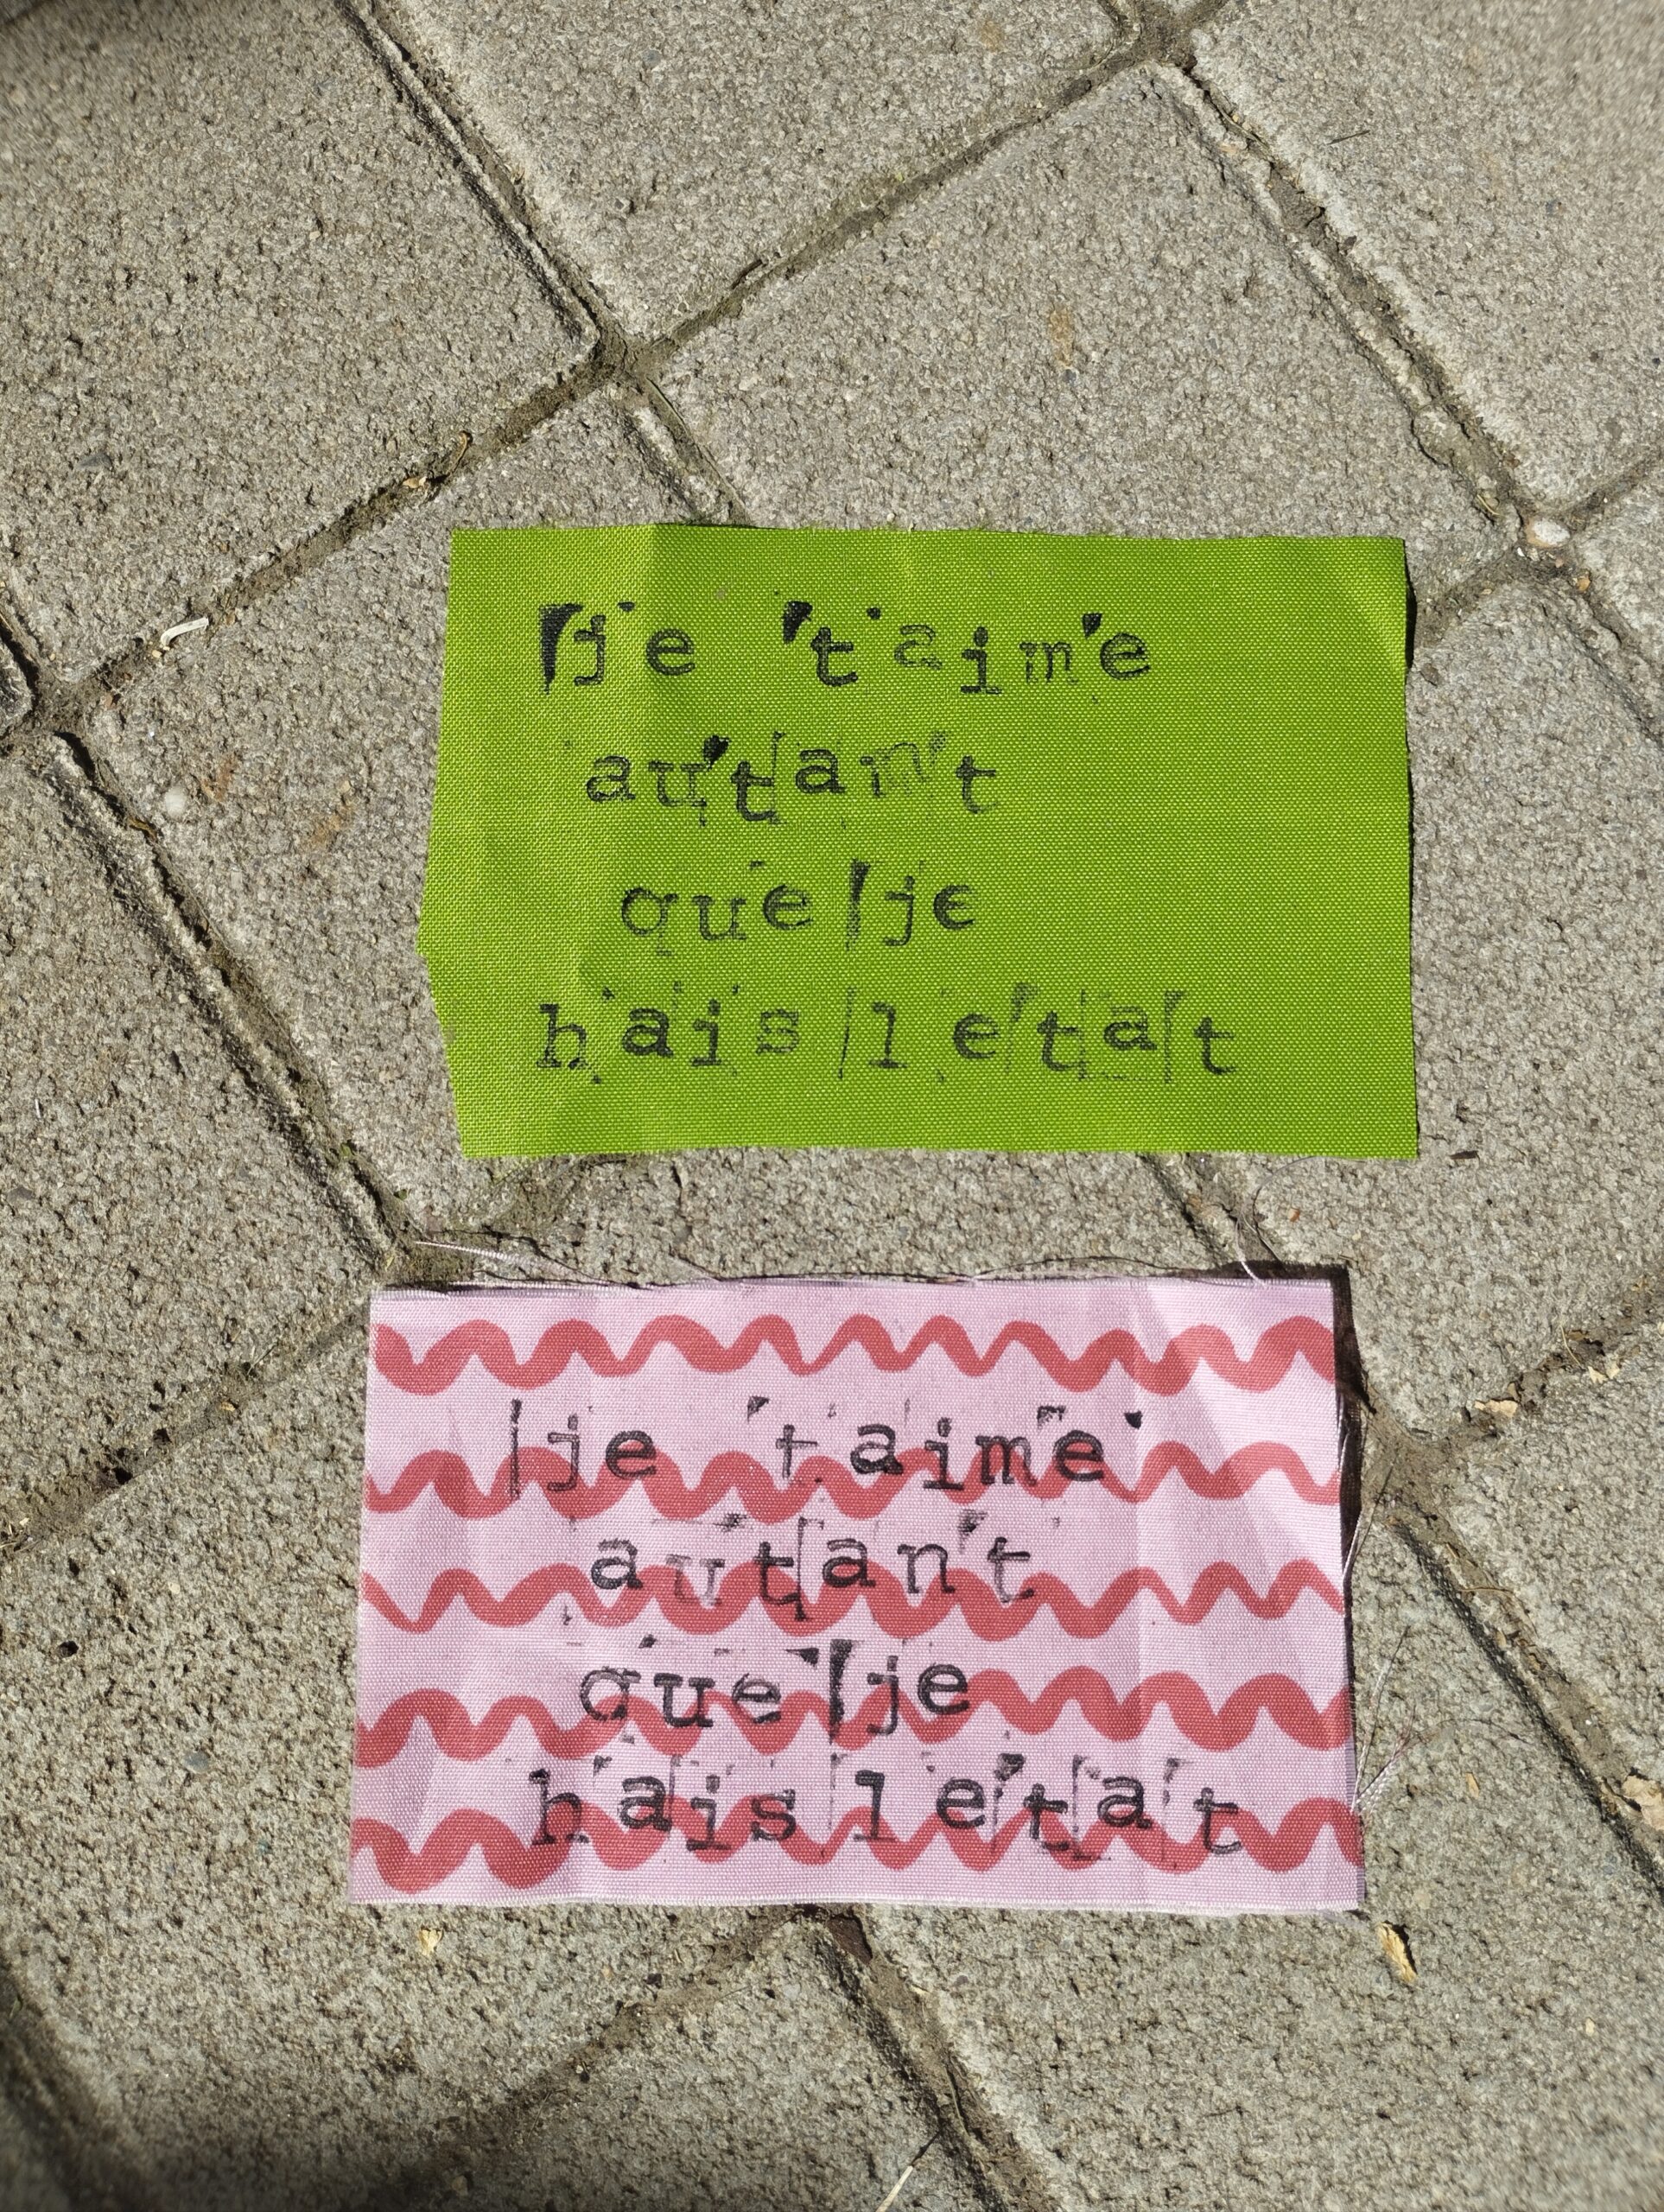 je t'aime
autant
que je
hais letat
je t'aime
autant
que je
hais letat